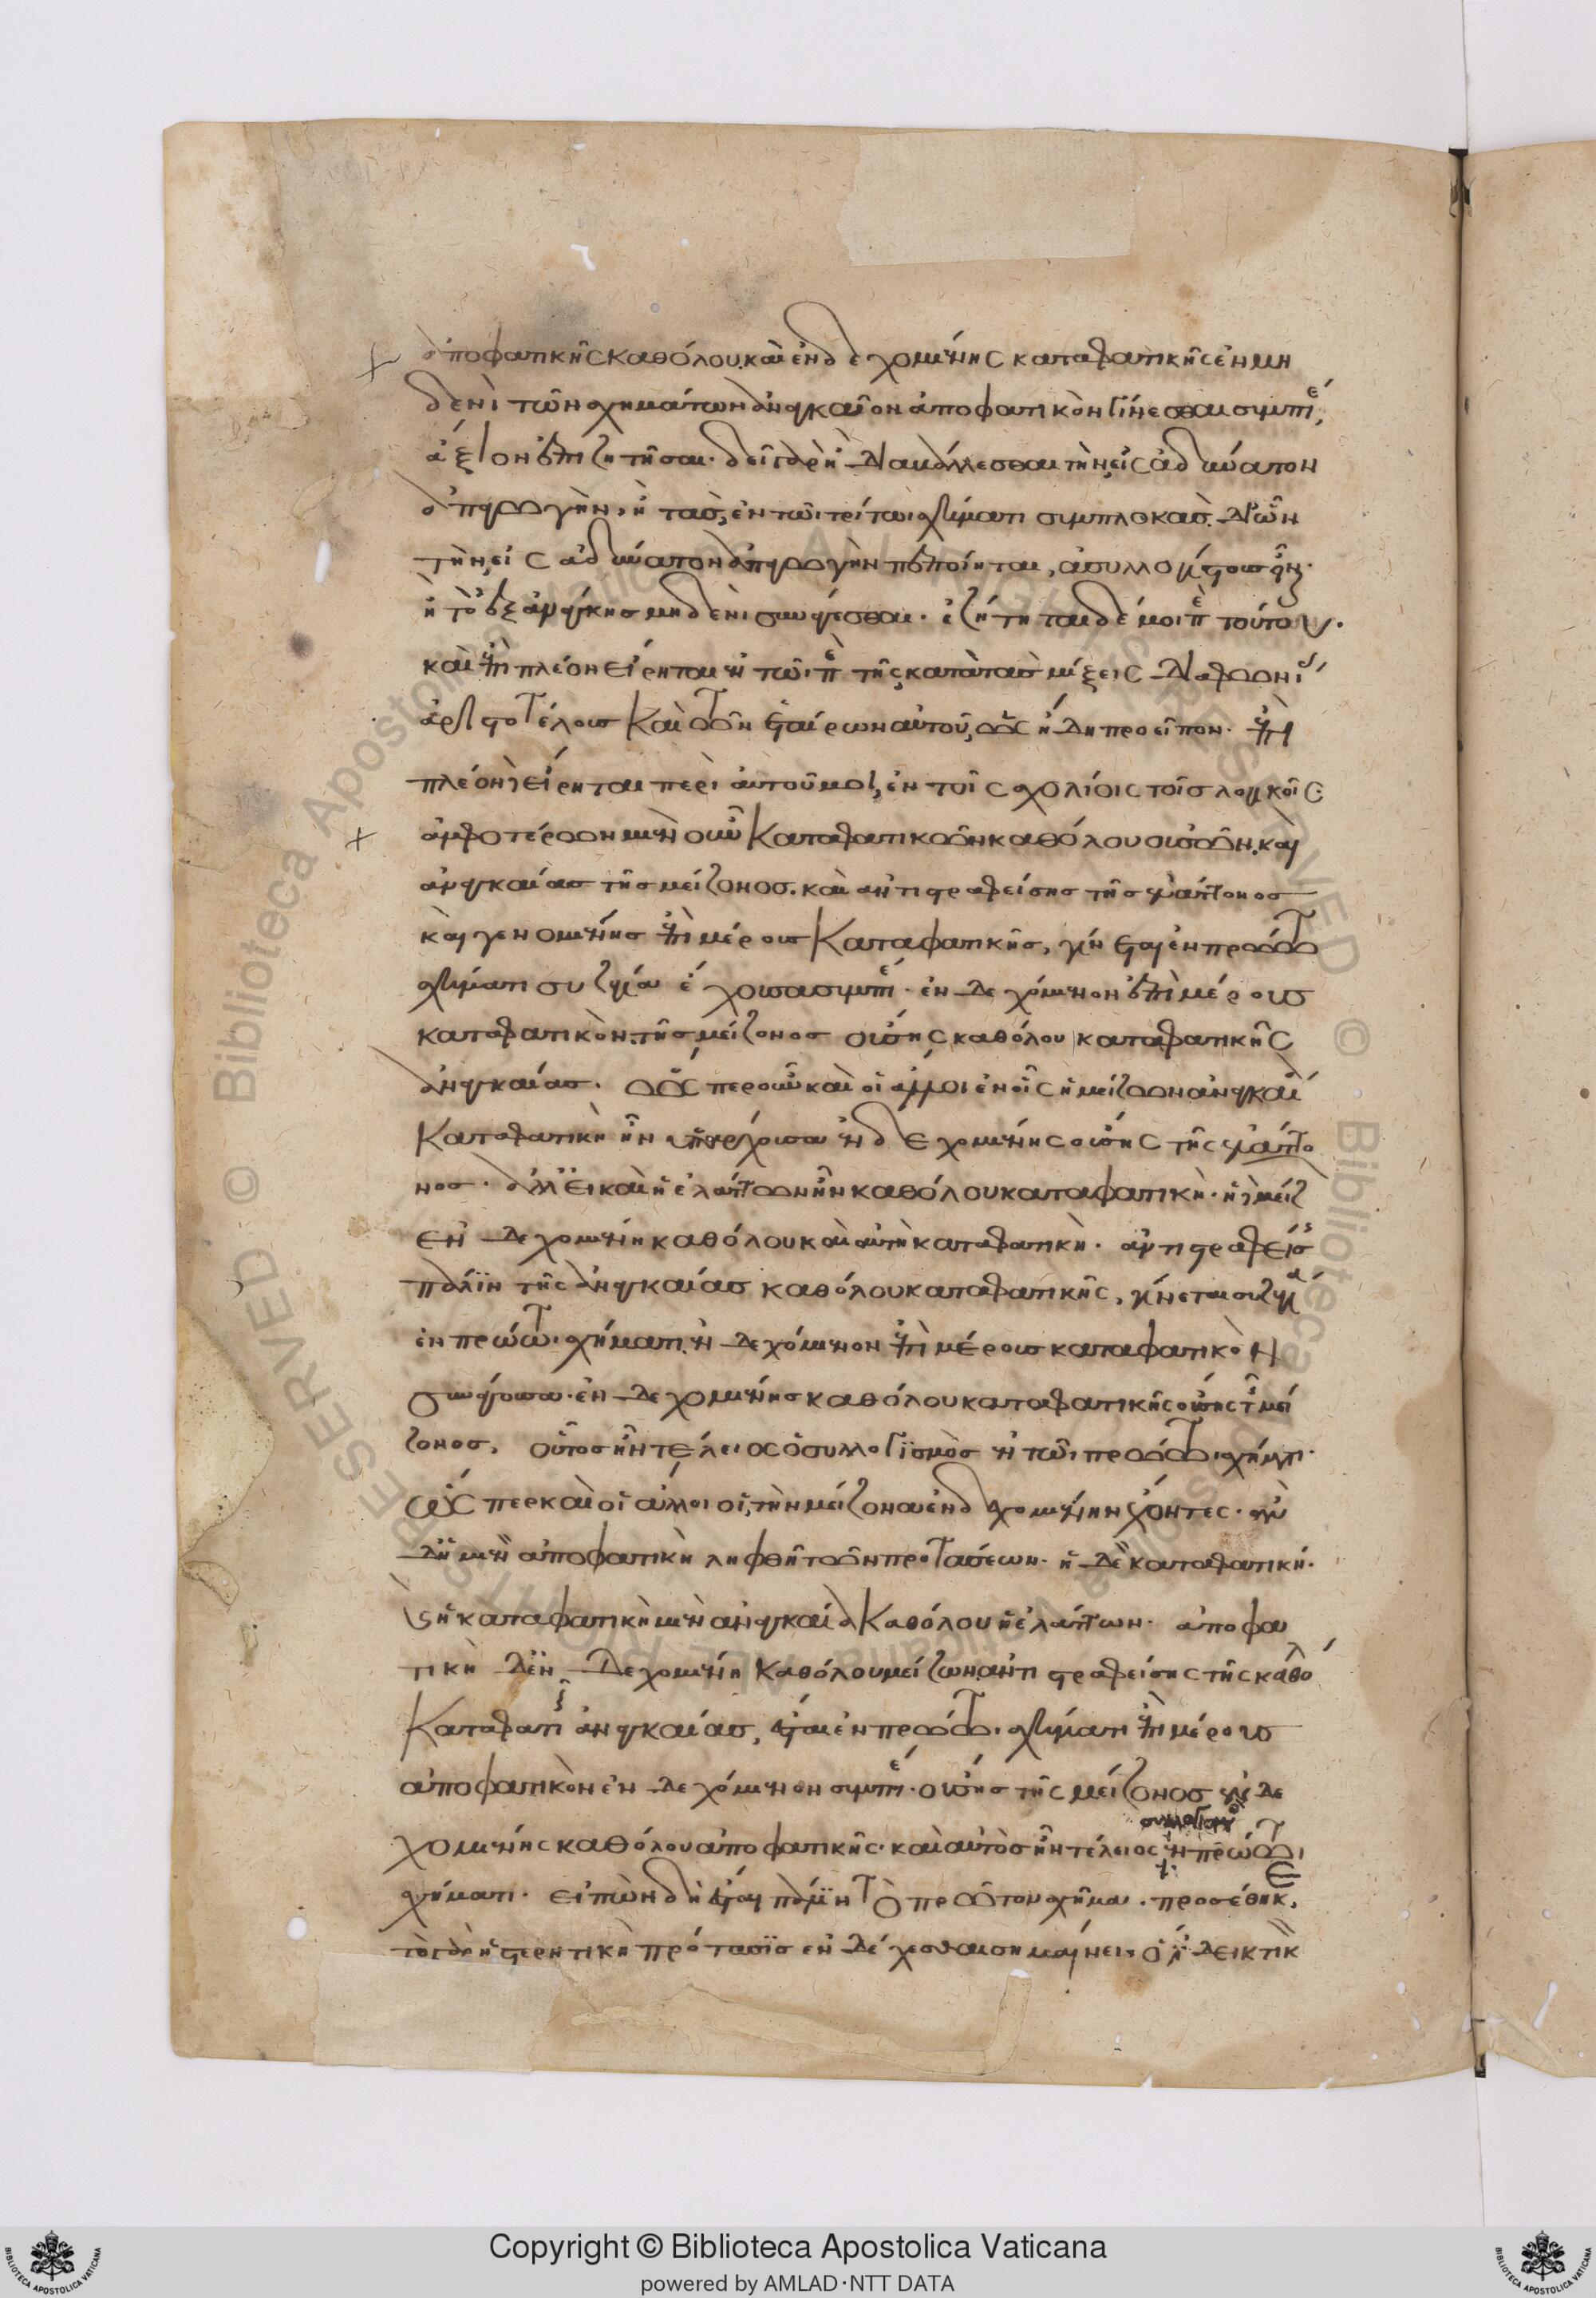 ἀποφατικῆς καθόλου. καὶ ἐνδεχομένης καταφατικῆς ἐν μη
δενὶ τῶν σχημάτων ἀναγκαῖον ἀποφατικὸν γίνεσθαι συμπέ,
ἄξιον ἐπιζητῆσαι. δεῖ γὰρ ἢ διαβάλλεσθαι τὴν εἰς ἀδύνατον
ἀπαγωγὴν, ἢ τὰς ἐν τῶι τρίτωι σχήματι συμπλοκὰς. δι' ὧν
τὴν εἰς ἀδύνατον ἀπαγωγὴν πεποίηται, ἀσυλλογίστους εἶν.
ἢ τὸ ἐξ ἀνάγκης μηδενὶ συνάγεσθαι. ἐζήτηται δέ μοι πε τούτου.
καὶ ἐπιπλέον εἴρηται ἐν τῶι πε τῆς κατὰ τὰς μίξεις διαφωνί
ἀριστοτέλους καὶ τῶν ἑταίρων αὐτοῦ, ὡς ἤδη προεῖπον. ἐπὶ
πλέον δὲ εἴρηται περὶ αὐτοῦ μοι, ἐν τοῖς σχολίοις τοῖς λογικοῖς
ἀμφοτέρων μὲν οὖν καταφατικῶν καθόλου οὐσῶν. καὶ
ἀναγκαίας τῆς μείζονος. καὶ ἀντιστραφείσης τῆς ἐλάττονος
καὶ γενομένης ἐπὶ μέρους καταφατικῆς, γίνεται ἐν πρώτω
σχήματι συζυγία ἔχουσα συμπέ. ἐνδεχόμενον ἐπὶ μέρους
καταφατικὸν. τῆς μείζονος οὔσης καθόλου καταφατικῆς
ἀναγκαίας. ὥσπερ οὖν καὶ οἱ ἄλλοι ἐν οἷς ἡ μείζων ἀναγκαί
καταφατικὴ ἦν ὑπάρχουσα ἐνδεχομένης οὔσης τῆς ἐλάττο
νος. ἀλλ' εἰ καὶ ἡ ἐλάττων ἦν καθόλου καταφατικὴ. ἡ δὲ μείζ
ἐνδεχομένη καθόλου καὶ αὐτὴ καταφατικὴ. ἀντιστραφείσ
πάλιν τῆς ἀναγκαίας καθόλου καταφατικῆς, γίνεται συζυγία
ἐν πρώτωι σχήματι. ἐνδεχόμενον ἐπὶ μέρους καταφατικὸν
συνάγουσα. ἐνδεχομένης καθόλου καταφατικῆς οὔσης τῆ μεί
ζονος, οὗτος ἦν τέλειος ὁ συλλογισμὸς ἐν τῶι πρώτωι σχήματι.
ὥσπερ καὶ οἱ ἄλλοι οἱ τὴν μείζονα ἐνδεχομένην ἔχοντες. ἐὰν
δὲ ἡ μὲν ἀποφατικὴ ληφθῆ τῶν προτάσεων. ἡ δὲ καταφατική.
καὶ ἡ καταφατικὴ μὲν ἀναγκαία καθόλου ἡ ἐλάττων. ἀποφα
τικὴ δὲ ἡ ἐνδεχομένη καθόλου μείζων. ἀντιστραφείσης τῆς καθολ
καταφατι ἀναγκαίας, ἔσται ἐν πρώτωι σχήματι ἐπὶ μέρους
ἀποφατικὸν ἐνδεχόμενον συμπέ. οὔσης τῆς μείζονος ἐνδε
χομένης καθόλου ἀποφατικῆς. καὶ αὐτὸς ἦν τέλειος συλλογισμὸ ἐν πρώτωι
σχήματι. εἰπὼν δὴ ἔσται πάλιν τὸ πρῶτον σχῆμα. προσέθηκε,
τὸ γὰρ ἡ στερητικὴ πρότασις ἐνδέχεσθαι σημαίνει, ὃ δεικτικ